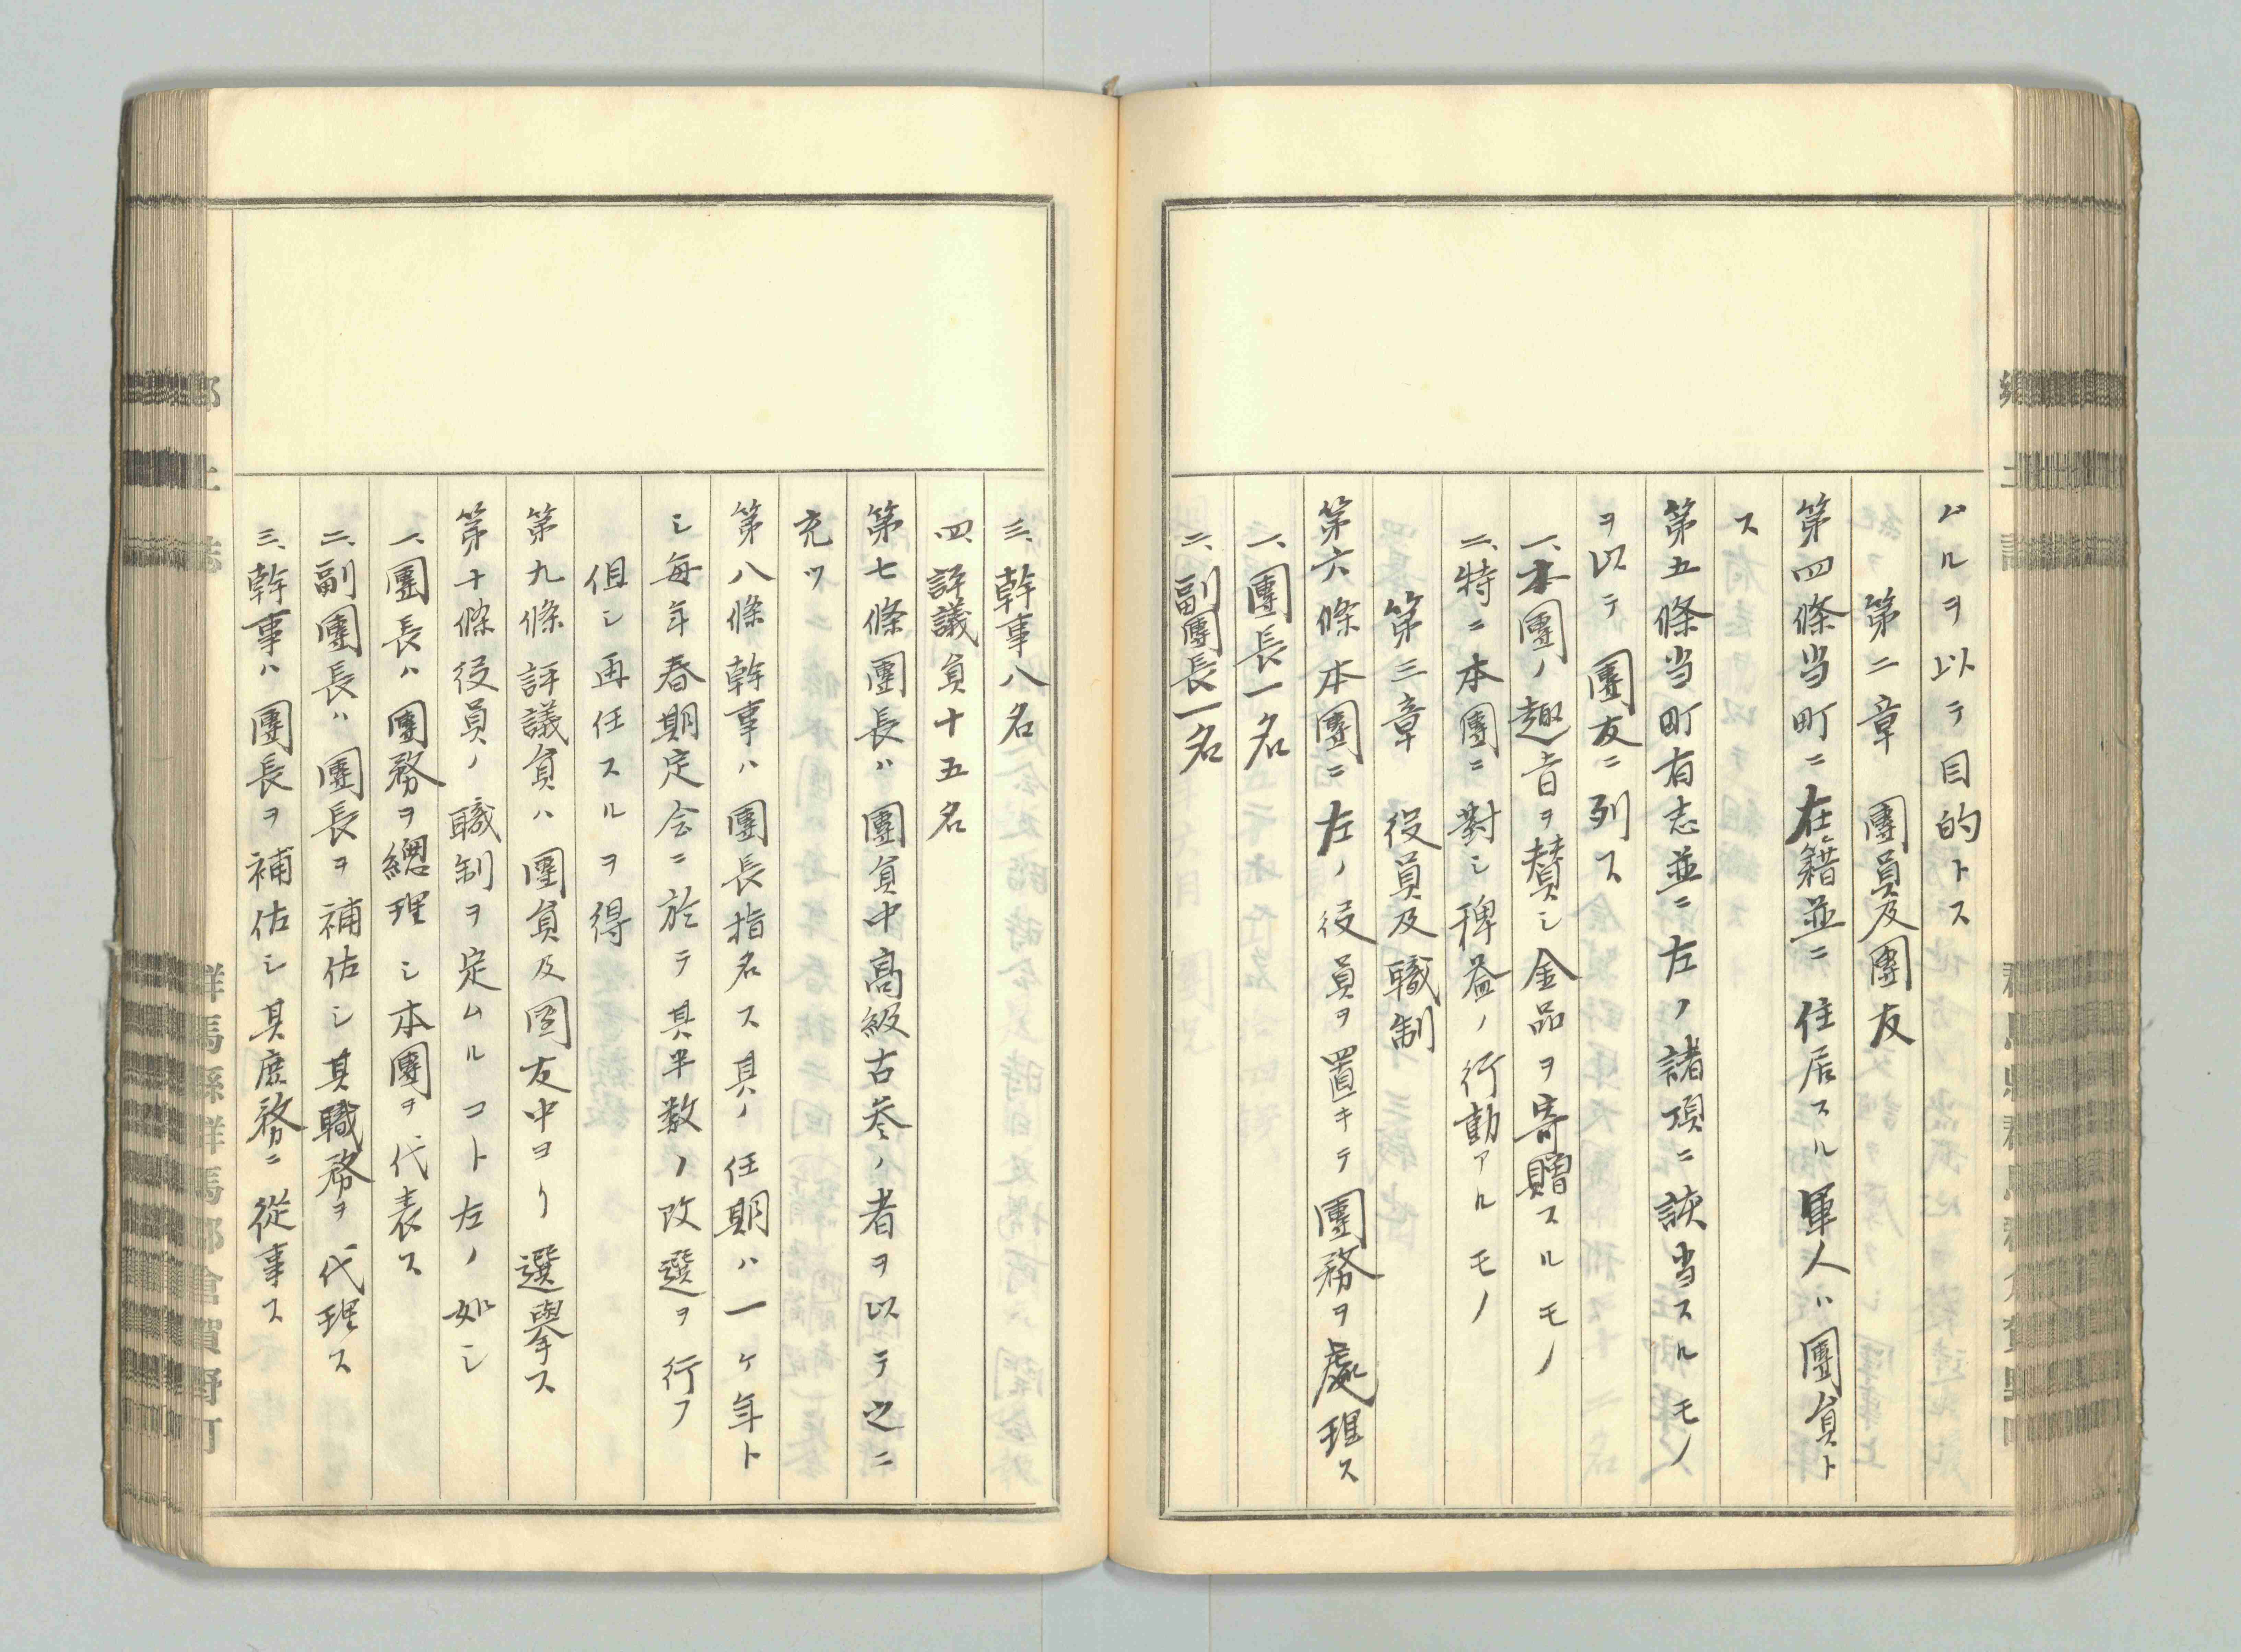 ムルヲ以テ目的トス
第二章 團員及團友
第四條当町ニ在籍並ニ住居スル軍人ハ團員ト
ス
第五條当町有志並ニ左ノ諸項ニ該当スルモノ
ヲ以テ團友ニ列ス
一、本團ノ趣旨ヲ賛シ金品ヲ寄贈スルモノ
二、特ニ本團ニ對シ稗益ノ行動アルモノ
第三章 役員及職制
第六條本團ニ左ノ役員ヲ置キテ團務ヲ處理ス
一、團長一名
二、副團長一名
三、幹事八名
四、評議員十五名
第七條團長ハ團員中高級古参ノ者ヲ以テ之ニ
充ツ
第八條幹事ハ團長指名ス其ノ任期ハ一ヶ年ト
シ毎年春期定会ニ於テ其半数ノ改選ヲ行フ
但シ再任スルヲ得
第九條評議員ハ團員及団友中ヨリ選擧ス
第十條役員ノ職制ヲ定ムルコト左ノ如シ
一、團長ハ團務ヲ總理シ本團ヲ代表ス
二、副團長ハ團長ヲ補佐シ其職務ヲ代理ス
三、幹事ハ團長ヲ補佐シ其庶務ニ從事ス
郷土誌
群馬縣群馬郡倉賀野町